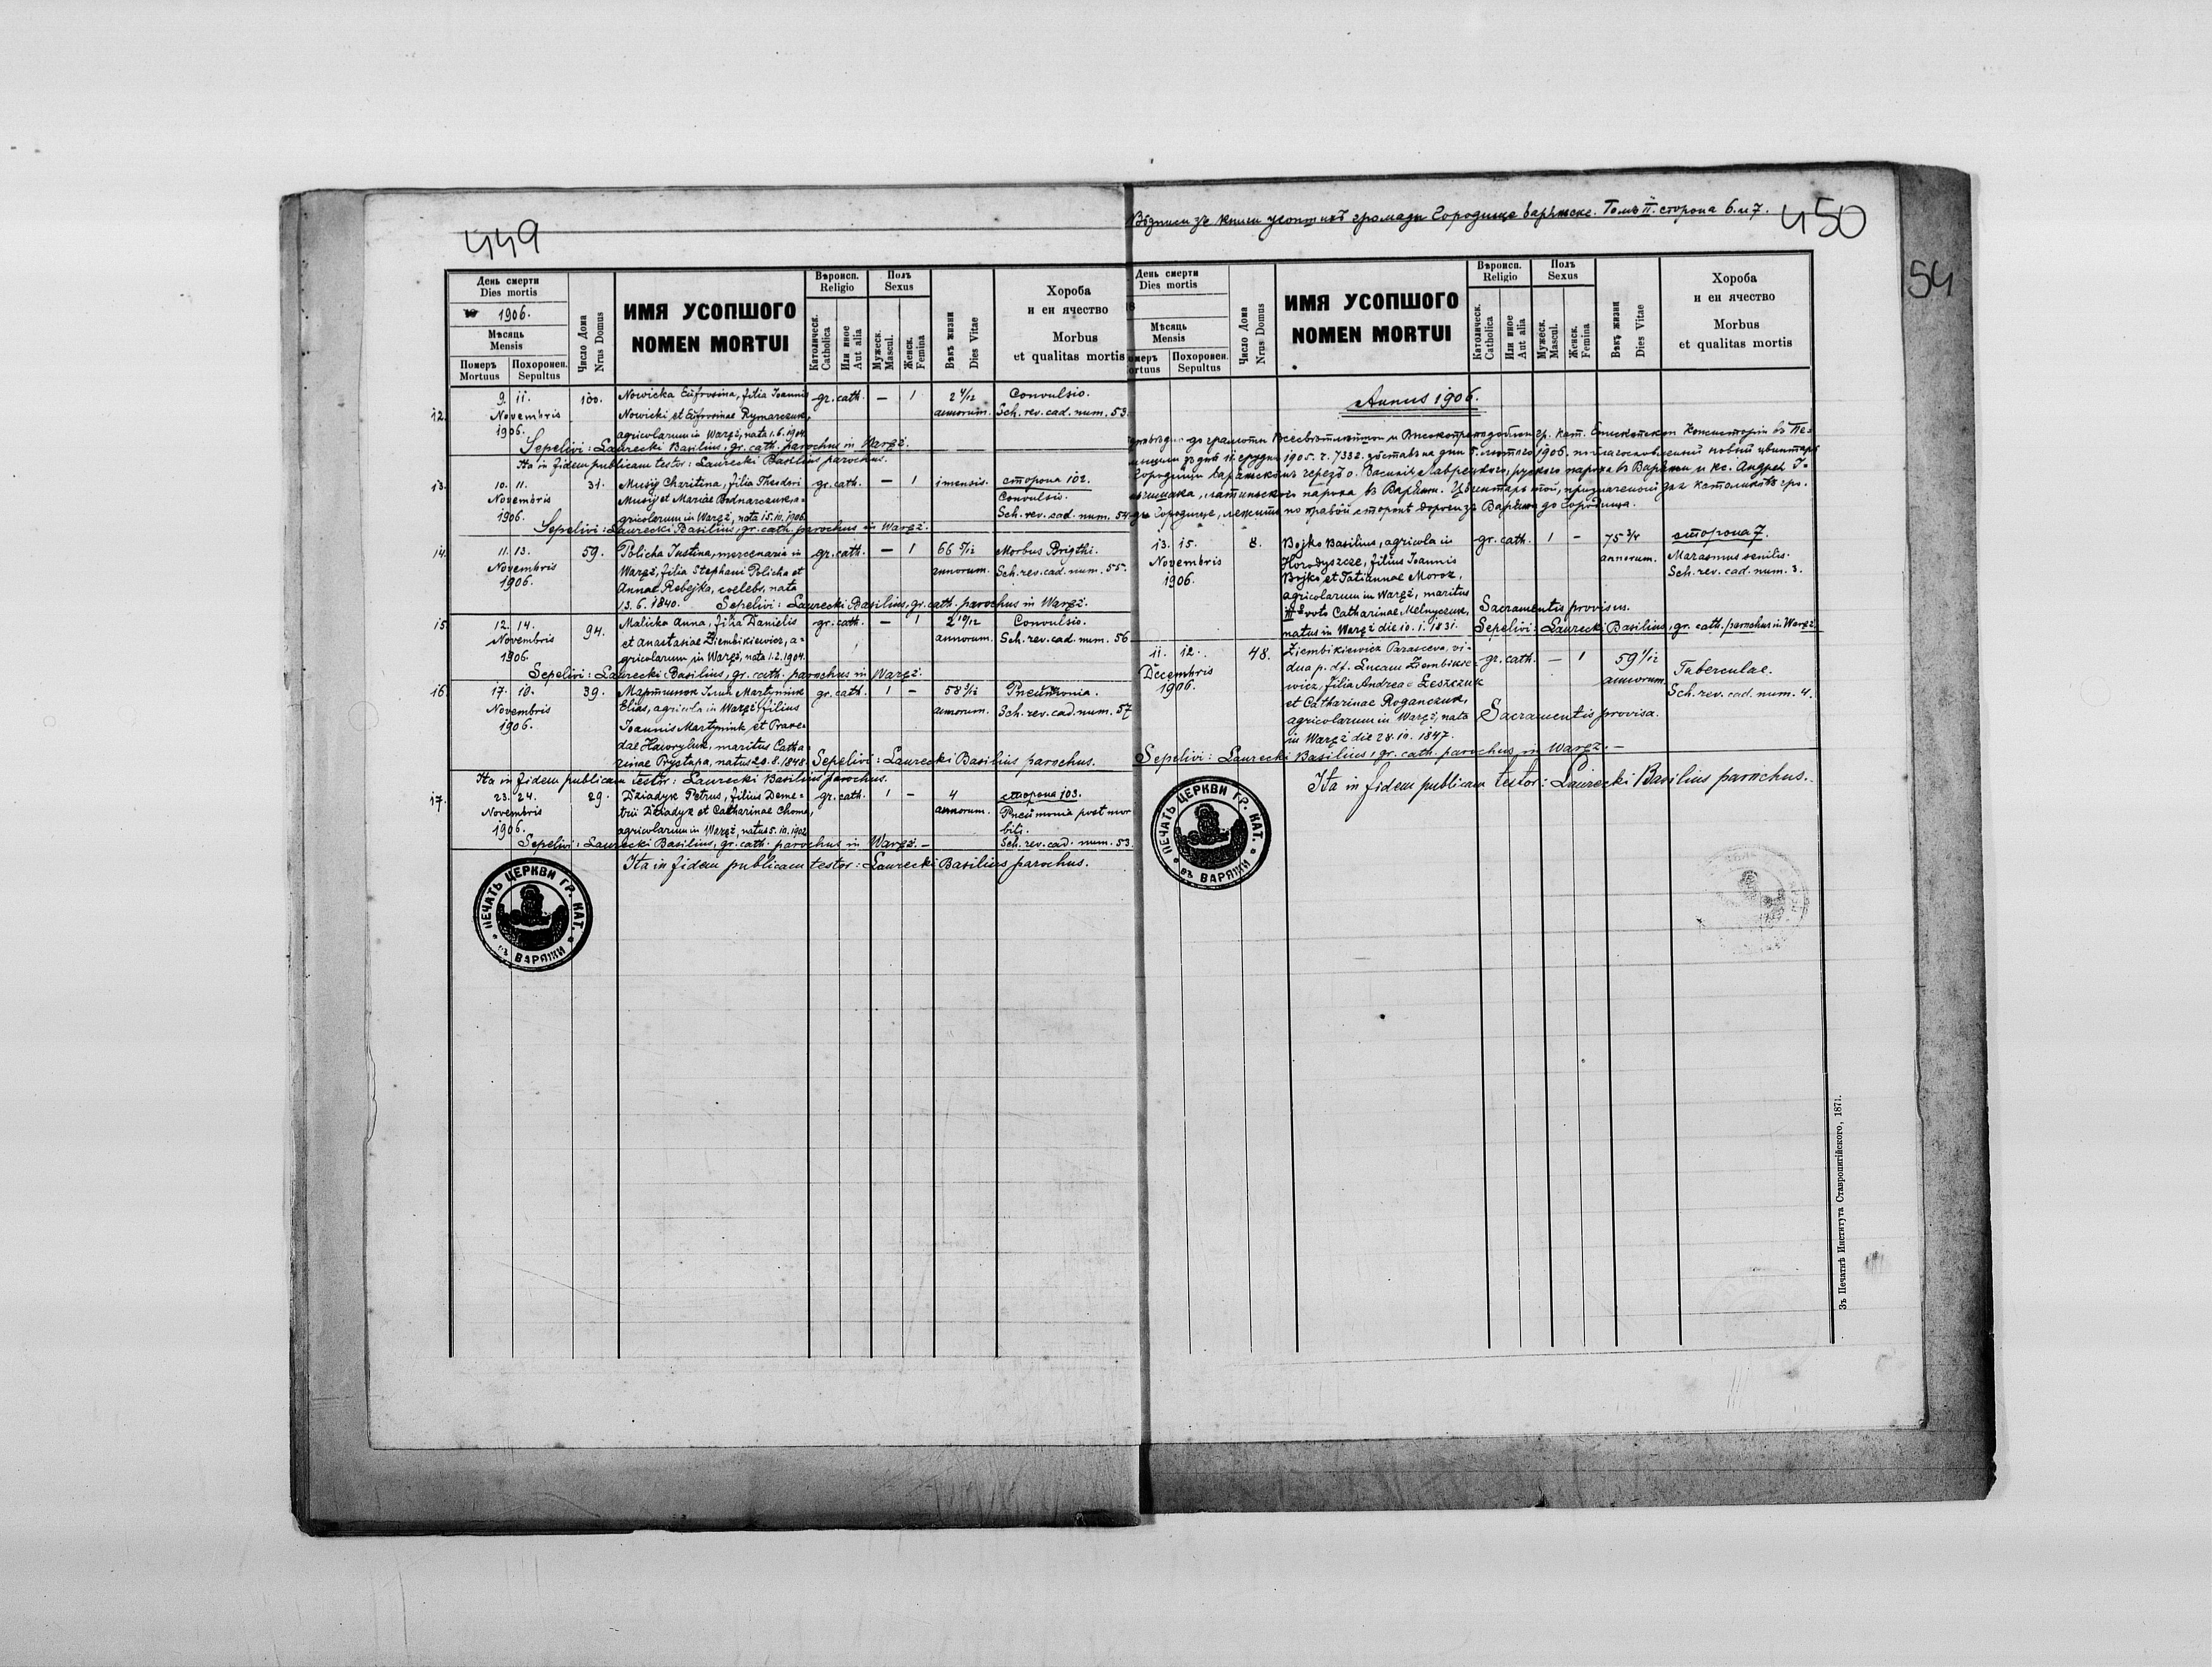 449
День смерти
Dies mortis
1906.
Мѣсяць
Mensis
Померъ
Mortuus
Похоронен.
Sepultus
Число Дома
Nrus Domus
ИМЯ УСОПШОГО
NOMEN MORTUI
Вѣроисп.
Religio
Католическ.
Catholica
Или иное
Aut alia
Полъ
Sexus
Мужеск.
Mascul.
Женск.
Femina
Вѣкъ жизни
Dies Vitae
Хороба
и еи ячество
Morbus
et qualitas mortis
12. 9. 11. 100. Nowicka Eufrosina, filia Joannis gr. cath. — 1 2 4/12 Convulsio.
Novembris Nowicki et Eufrosinae Rymarczuk, annorum. Sch. rev. cad. num. 53.
1906. agricolarum in Waręż, nata 1. 6. 1904.
Sepelivi: Laurecki Basilius, gr. cath. parochus in Waręż.
Ita in fidem publicam testor: Laurecki Basilius parochus.
13. 10. 11. 31. Musij Charitina, filia Theodori gr. cath. — 1 1 mensis. сторона 102.
Novembris Musij et Mariae Bodnarczuk, a- Convulsio.
1906. gricolarum in Waręż, nata 15. 10. 1906. Sch. rev. cad. num. 54
Sepelivi: Laurecki Basilius, gr. cath. parochus in Waręż.
14. 11. 13. 59. Policha Justina, mercenaria in gr. cath. — 1 66 5/12 Morbus Brigthi.
Novembris Waręż, filia Stephani Policha et annorum. Sch. rev. cad. num. 55.
1906. Annae Rebejko, coelebs, nata
13. 6. 1840. Sepelivi: Laurecki Basilius, gr. cath. parochus in Waręż.
15 12. 14. 94. Malicka Anna, filia Danielis gr. cath. — 1 2 10/12 Convulsio.
Novembris et Anastasiae Ziembikiewicz, a- annorum. Sch. rev. cad. num. 56
1906. gricolarum in Waręż, nata 1. 2. 1904.
Sepelivi: Laurecki Basilius, gr. cath. parochus in Waręż.
16. 17. 19. 39. Мартинюк Martyniuk gr. cath. 1 — 58 3/12 Pneumonia.
Novembris Elias, agricola in Waręż, filius annorum. Sch. rev. cad. num. 57
1906. Joannis Martyniuk et Praxe-
dae Hawryluk, maritus Catha-
rinae Prystapa, natus 20. 8. 1848. Sepelivi: Laurecki Basilius parochus.
Ita in fidem publicam testor: Laurecki Basilius parochus.
17. 23. 24. 29. Dziadyk Petrus, filius Deme- gr. cath. 1 — 4 сторона 103.
Novembris trii Dziadyk et Catharinae Choma, annorum. Pneumonia post mor
1906. agricolarum in Waręż, natus 5. 10. 1902 bili.
Sepelivi: Laurecki Basilius, gr. cath. parochus in Waręż. — Sch. rev. cad. num. 53.
Ita in fidem publicam testor: Laurecki Basilius parochus.
ПЕЧАТЬ ЦЕРКВИ ГР. КАТ.
въ ВАРЯЖИ
Вѣдписи зъ книги усопшихъ громады Городище варяжске. Томъ II. сторона 6. и 7.
450
54
День смерти
Dies mortis
18
Мѣсяць
Mensis
Померъ
Mortuus
Похоронен.
Sepultus
Число Дома
Nrus Domus
ИМЯ УСОПШОГО
NOMEN MORTUI
Вѣроисп.
Religio
Католическ.
Catholica
Или иное
Aut alia
Полъ
Sexus
Мужеск.
Mascul.
Женск.
Femina
Вѣкъ жизни
Dies Vitae
Хороба
и еи ячество
Morbus
et qualitas mortis
Annus 1906.
до грамоты Всесвѣтлѣйшои и Високопреподобнои гр. кат. Епископскои Консисторіи въ Пе-
зъ дня 11 грудня 1905. ч. 7332. зôставъ на дни 5. лютого 1906. поблагословленый новый цвинтарь
Городищи варяжскомъ черезъ о. Василія Лаврецкого, руского пароха въ Варяжи и кс. Андрея
латиньского пароха въ Варяжи. Цвинтарь той, призначеный для католикôвъ гро-
Городище, лежить по правôй сторонѣ дороги зъ Варяжа до Городища.
13. 15. 8. Bojko Basilius, agricola in gr. cath. 1 — 75 3/4 сторона 7.
Novembris Horodyszcze, filius Joannis annorum. Marasmus senilis.
1906. Bojko et Tatiannae Moroz, Sch. rev. cad. num. 3.
agricolarum in Waręż, maritus
voto Catharinae Melnyczuk, Sacramentis provisus.
natus in Waręż die 10. 1. 1831. Sepelivi: Laurecki Basilius, gr. cath. parochus in Waręż.
11. 12. 48. Ziembikiewicz Parasceva, vi- gr. cath. — 1 59 1/12 Tuberculae.
Decembris dua p. df. Lucam Ziembikie- annorum. Sch. rev. cad. num. 4.
1906. wicz, filia Andreae Leszczuk
et Catharinae Roganczuk,
agricolarum in Waręż, nata Sacramentis provisa.
in Waręż die 28. 10. 1847.
Sepelivi: Laurecki Basilius, gr. cath. parochus in Waręż. —
Ita in fidem publicam testor: Laurecki Basilius parochus.
ПЕЧАТЬ ЦЕРКВИ ГР. КАТ.
въ ВАРЯЖИ
Зъ Печатнѣ Института Ставропигійского, 1871.